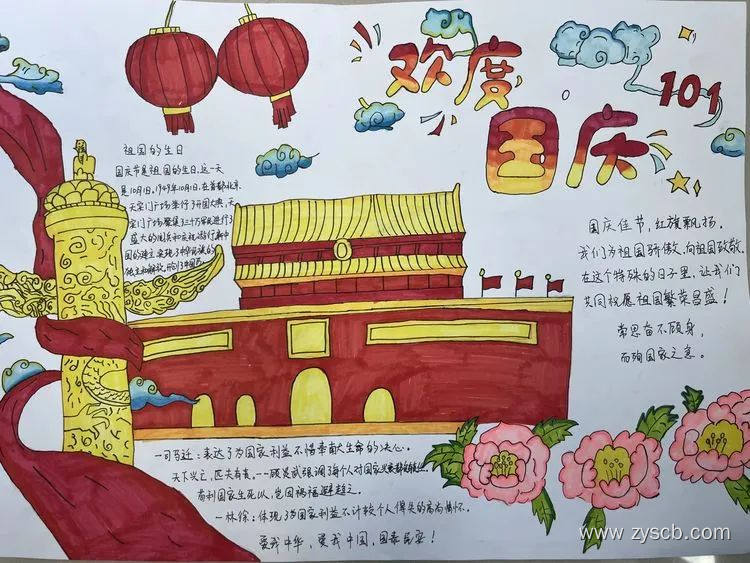 欢度
国庆
101
祖国的生日
国庆节是祖国的生日,这一天
是10月1日,1949年10月1日,在首都北京
天安门广场举行了开国大典,天
安门广场聚集了三十万军民进行了
盛大的阅兵和庆祝游行新中
国的建立,实现了中华民族的
独立和解放,
国庆佳节,红旗飘扬,
我们为祖国骄傲,向祖国致敬,
在这个特殊的日子里,让我们
共同祝愿祖国繁荣昌盛!
常思奋不顾身,
而殉国家之急。
一司马迁:表达了为国家利益不惜奉献生命的决心。
天下兴亡,匹夫有责。一顾炎武强调了每个人对国家兴衰都有责任。
苟利国家生死以,岂因祸福避趋之。
一林徐:体现了为国家利益不计较个人得失的高尚情怀。
爱我中华,爱我中国,国泰民安!
www.zyscb.com